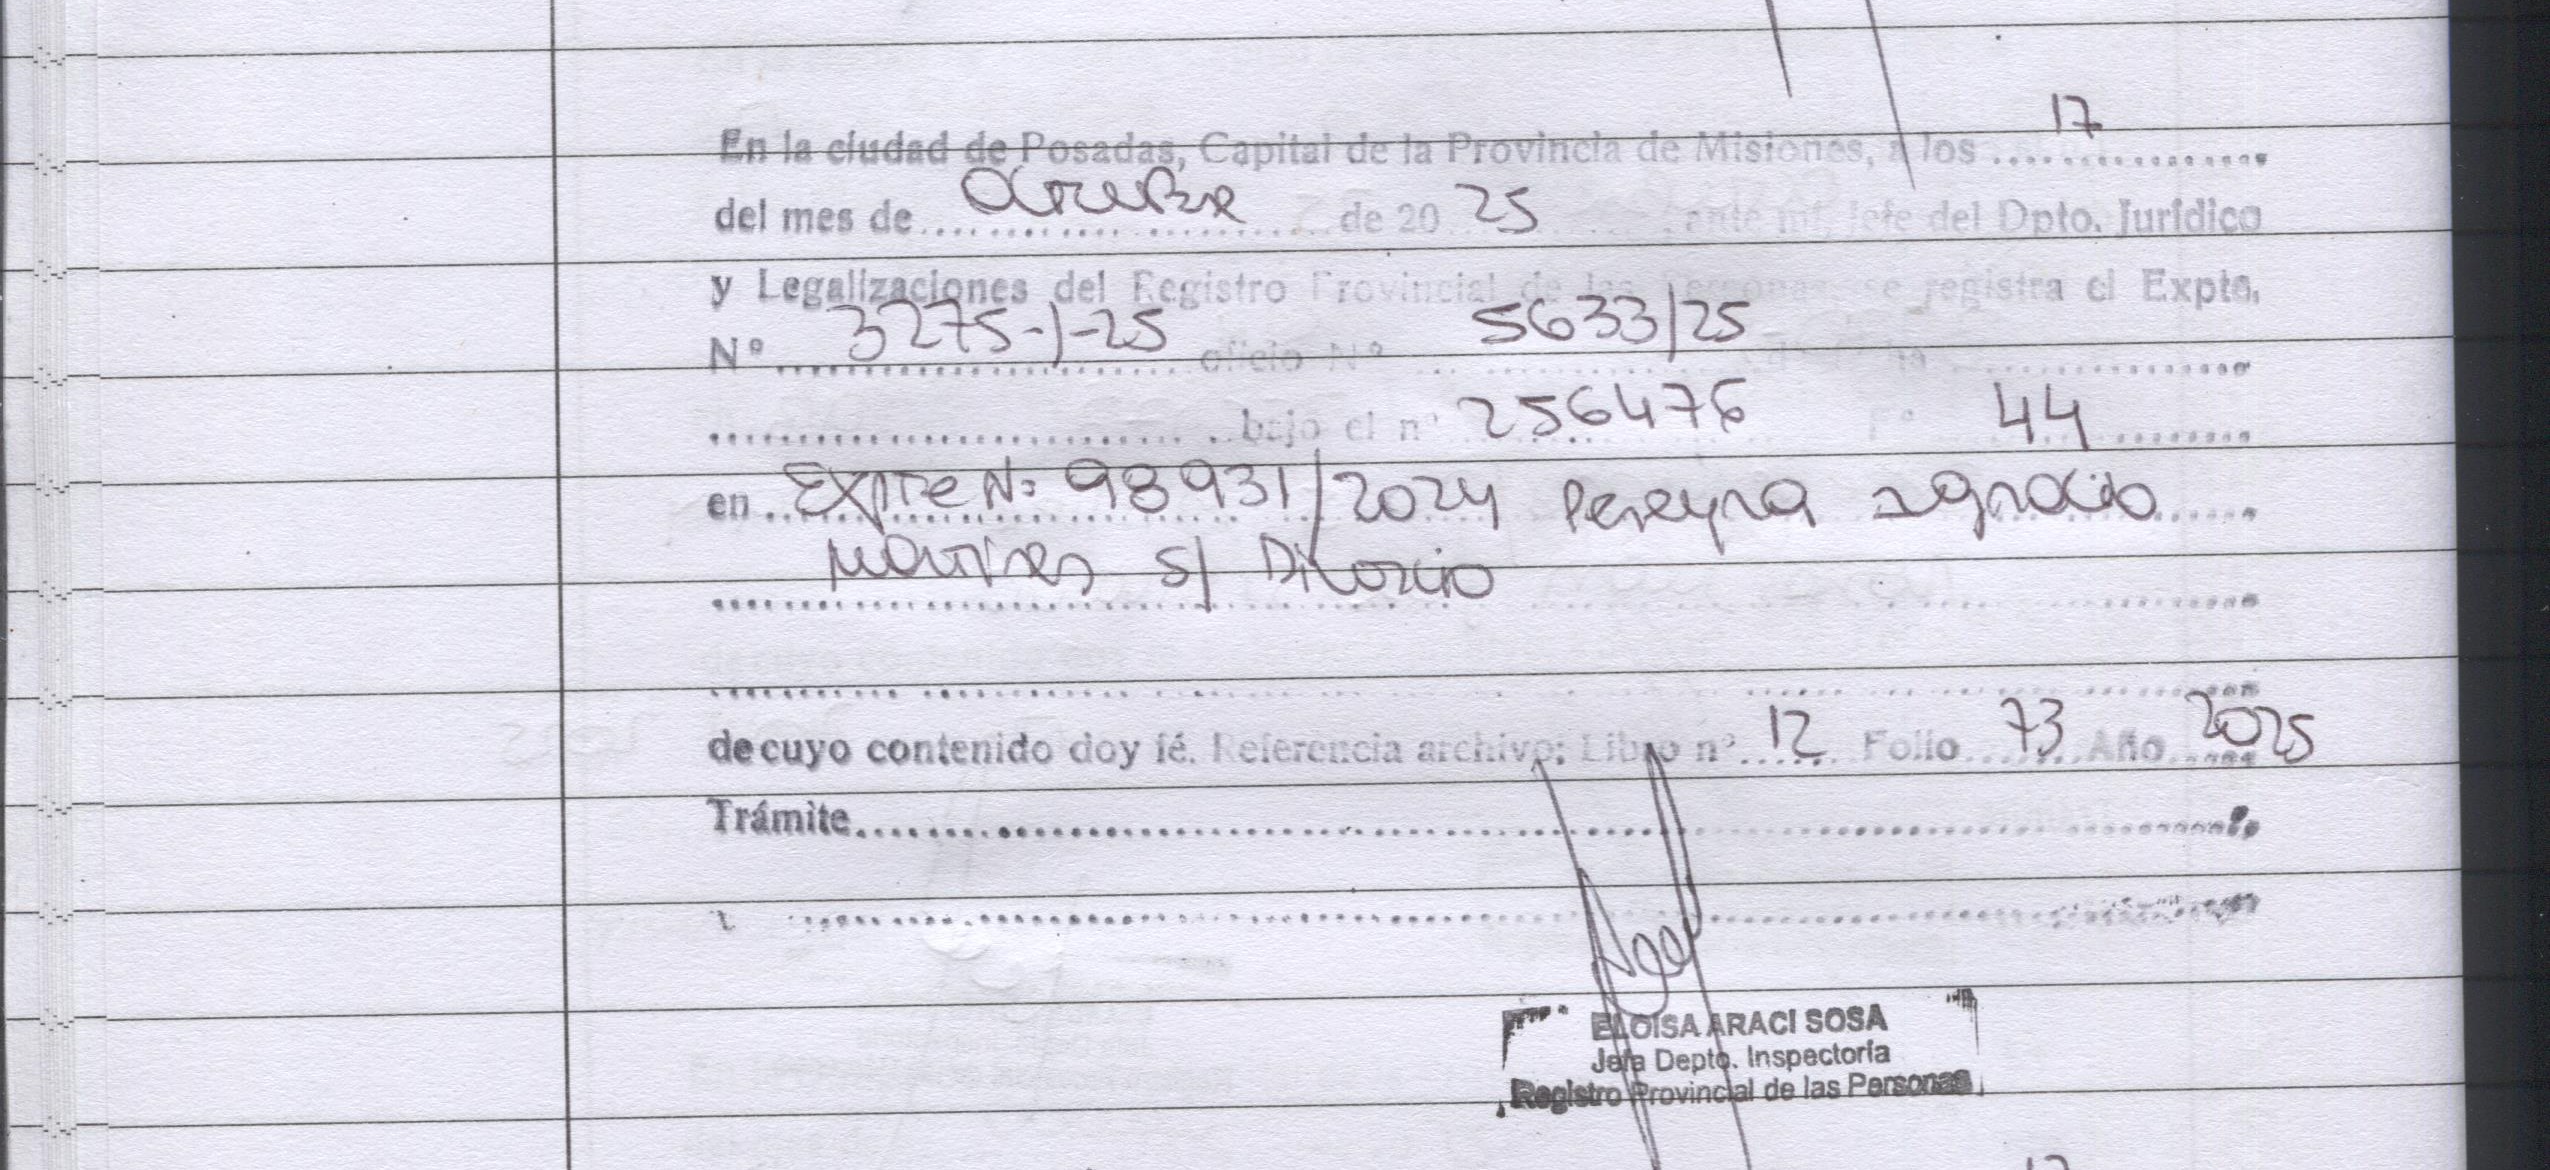 17
En la ciudad de Posadas, Capital de la Provincia de Misiones, a los ................
del mes de Octubre de 20 25 , ante mí, Jefe del Dpto. Jurídico
y Legalizaciones del Registro Provincial de las Personas, se registra el Expte.
Nº 3275-J-25 oficio Nº 5633/25
bajo el nº 256476 Fº 44
en Expte Nº 98931/2024 Pereyra Ignacio
s/ Divorcio
de cuyo contenido doy fé. Referencia archivo: Libro nº 12 Folio 73 Año 2025
Trámite
ELOISA ARACI SOSA
Jefa Depto. Inspectoría
Registro Provincial de las Personas